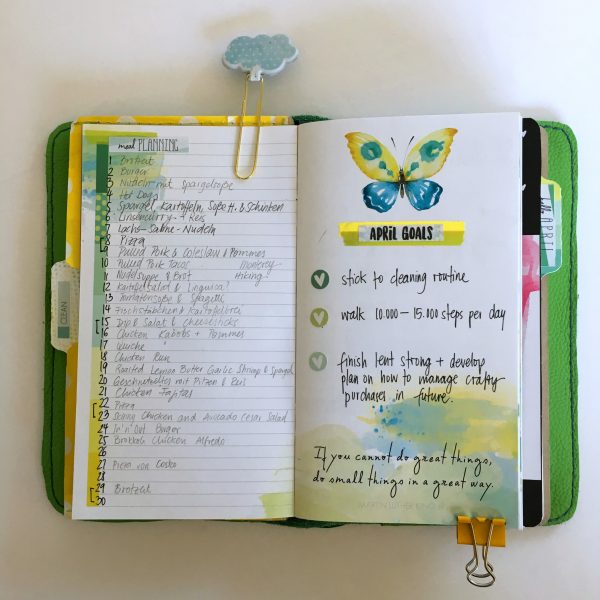 meal PLANNING
1 Brotzeit
2 Burger
3 Nudeln mit Spargelsoße
4 Hot Dogs
5 Spargel, Kartoffeln, Soße H. & Schinken
6 Linsencurry + Reis
7 Lachs-Sahne-Nudeln
8 Pizza
9 Pulled Pork & Coleslaw & Pommes
10 Pulled Pork Tacos Monterey
11 Nudelsuppe & Brot Hiking
12 Kartoffelsalat & Linguica?
13 Tomatensoße & Spagetti
14 Fischstäbchen & Kartoffelbrei
15 Dip & Salat & Cheesesticks
16 Chicken Kabobs + Pommes
17
18 Chicken
19 Roasted Lemon Butter Garlic Shrimp & Spargel
20 Geschnetzeltes mit Pilzen & Reis
21 Chicken Fajitas
22 Pizza
23 Skinny Chicken and Avocado Cesar Salad
24 In'n'Out Burger
25 Brokkoli Chicken Alfredo
26
27 Pizza von Costco
28
29 Brotzeit
30
CLEAN
APRIL GOALS
stick to cleaning routine
walk 10.000 - 15.000 steps per day
finish lent strong + develop
plan on how to manage crafty
purchases in future.
If you cannot do great things,
do small things in a great way.
MARTIN LUTHER KING
APRIL